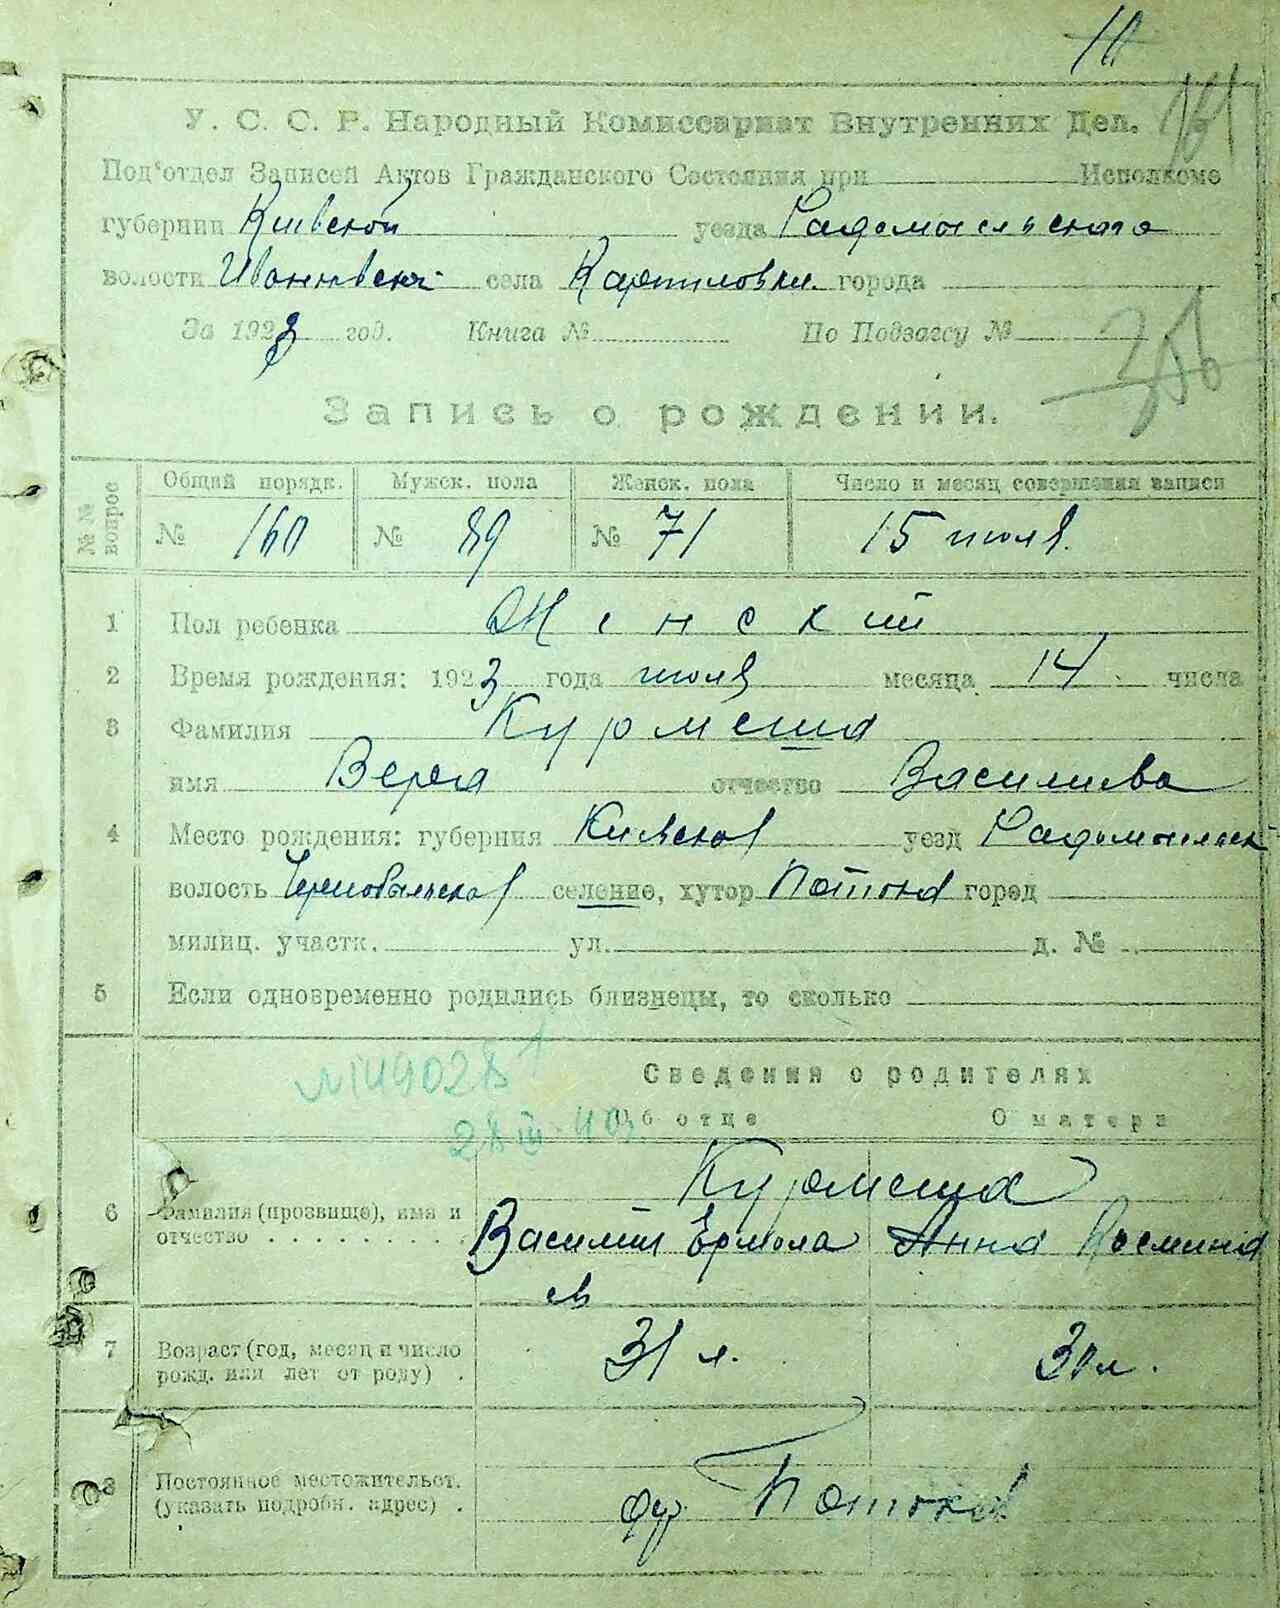 У. С. С. Р. Народный Комиссариат Внутренних Дел.
Под'отдел Записей Актов Гражданского Состояния при Исполкоме
губернии Киевской уезда Радомысльского
волости села Карпиловки города
За 1923 год. Книга № По Подзагсу №
Запись о рождении.
№ № вопрос Общий порядк. Мужск. пола Женск. пола Число и месяц совершения записи
№ 160 № 89 № 71 15 июля.
1 Пол ребенка Женский
2 Время рождения: 1923 года июля месяца 14 числа
3 Фамилия Курмеша
имя Вера отчество Василиева
4 Место рождения: губерния Киевская уезд Радомысльск
волость Чернобыльская селение, хутор Потоки город
милиц. участк. ул. д. №
5 Если одновременно родились близнецы, то сколько
№ 149028
Сведения о родителях
28 III-40г.
Об отце О матери
Курмеша
6 Фамилия (прозвище), имя и
отчество Василий Ермола Анна Космина
ев
7 Возраст (год, месяц и число
рожд. или лет от роду) 31 л. 30 л.
8 Постоянное местожительст.
(указать подробн. адрес)
Потоки